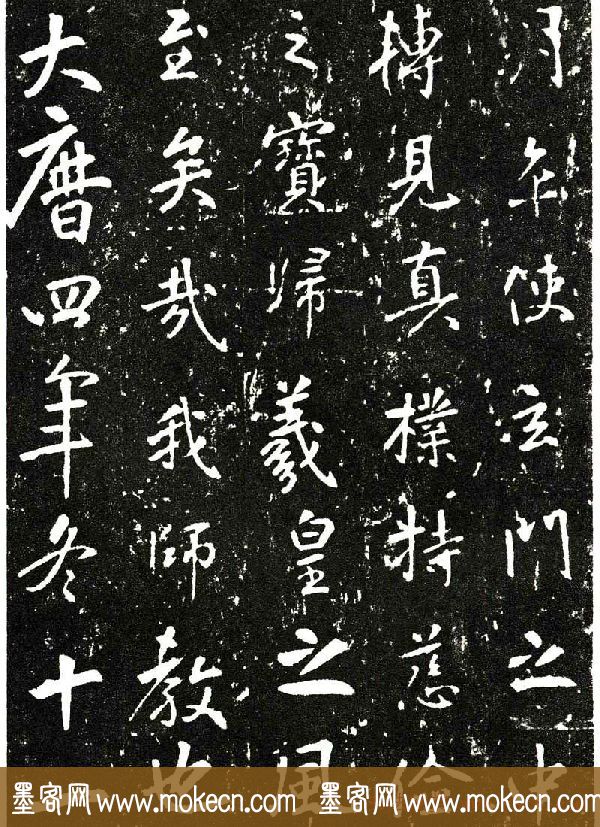 月尒使玄門之中
搏見真樸持慈儉
之寶歸羲皇之風
至矣哉我師教也
大曆四年冬十一
墨客网 www.mokecn.com 墨客网 www.mokecn.com